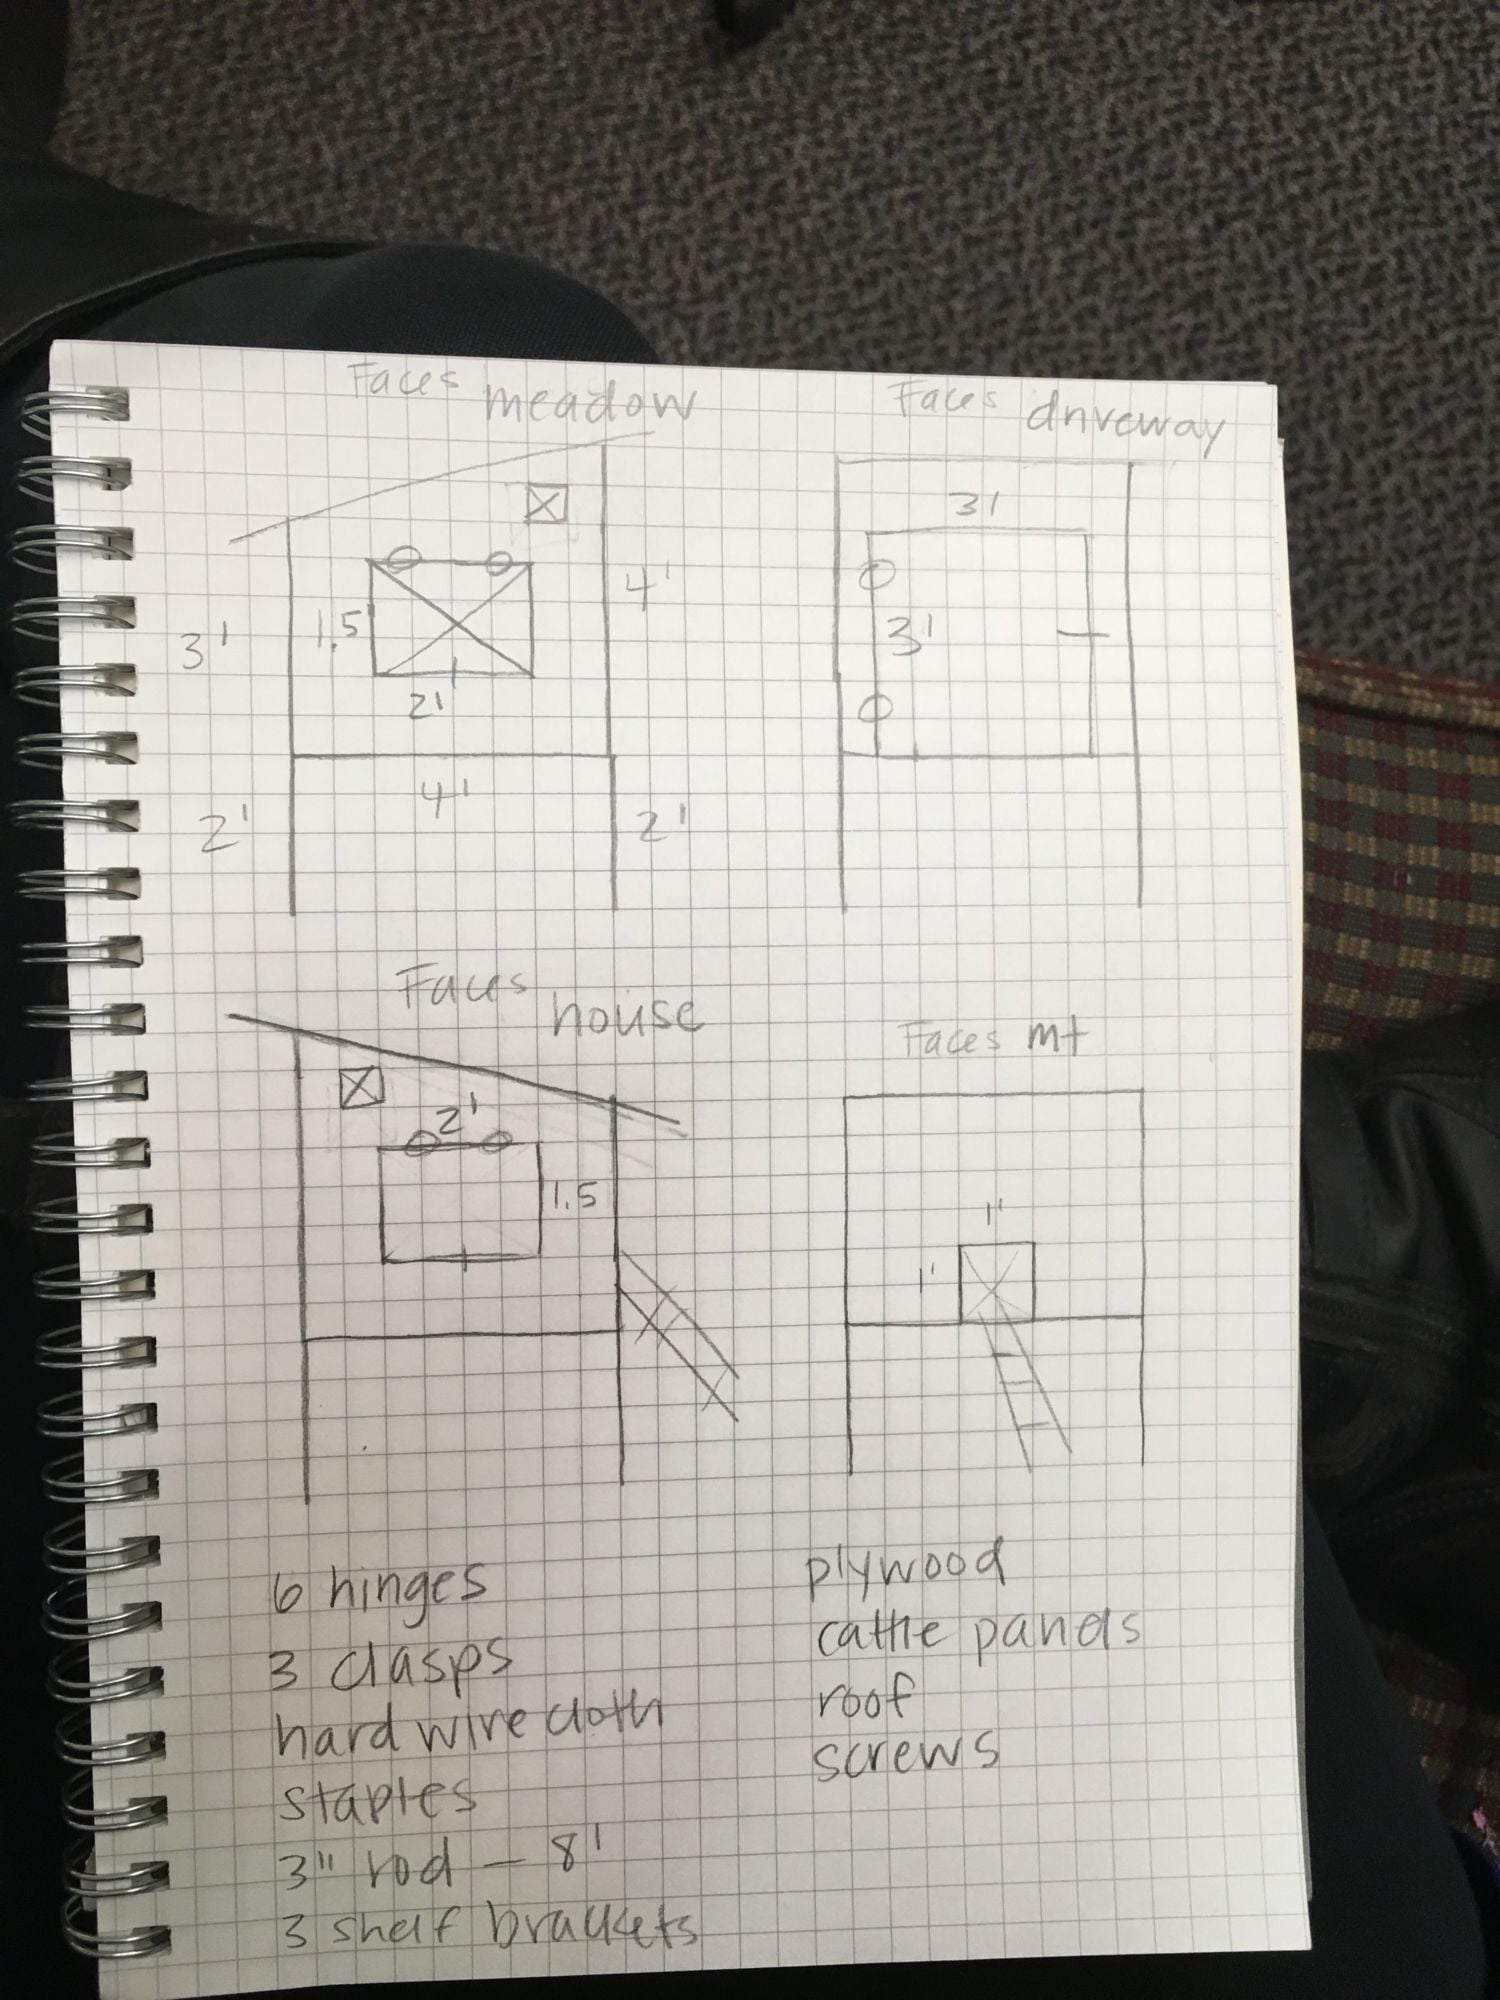 Faces meadow
Faces driveway
3'
4'
1.5'
3'
3'
2'
4'
2'
2'
Faces house
Faces mt
2'
1.5
1'
1'
6 hinges
3 clasps
hard wire cloth
staples
3" rod — 8'
3 shelf brackets
plywood
cattle panels
roof
screws